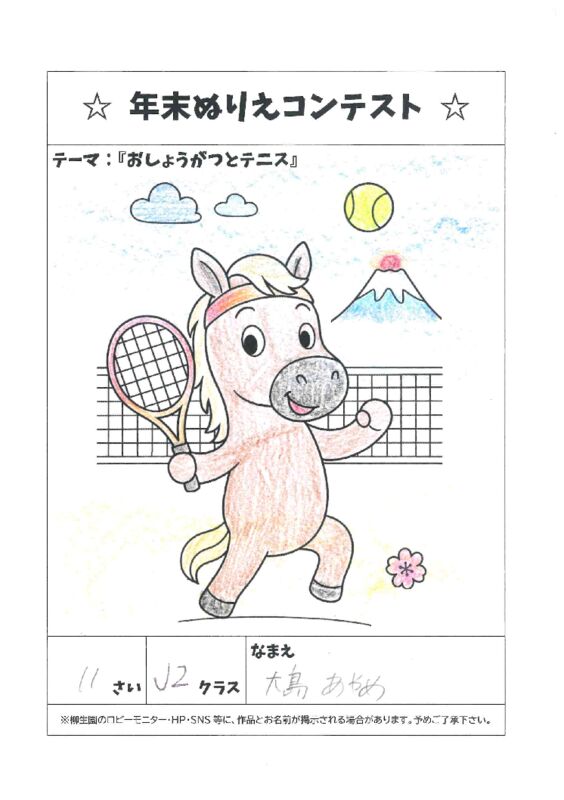 ☆ 年末ぬりえコンテスト ☆
テーマ：『おしょうがつとテニス』
11 さい
J2 クラス
なまえ
大島 あやめ
※柳生園のロビーモニター・HP・SNS 等に、作品とお名前が掲示される場合があります。予めご了承下さい。